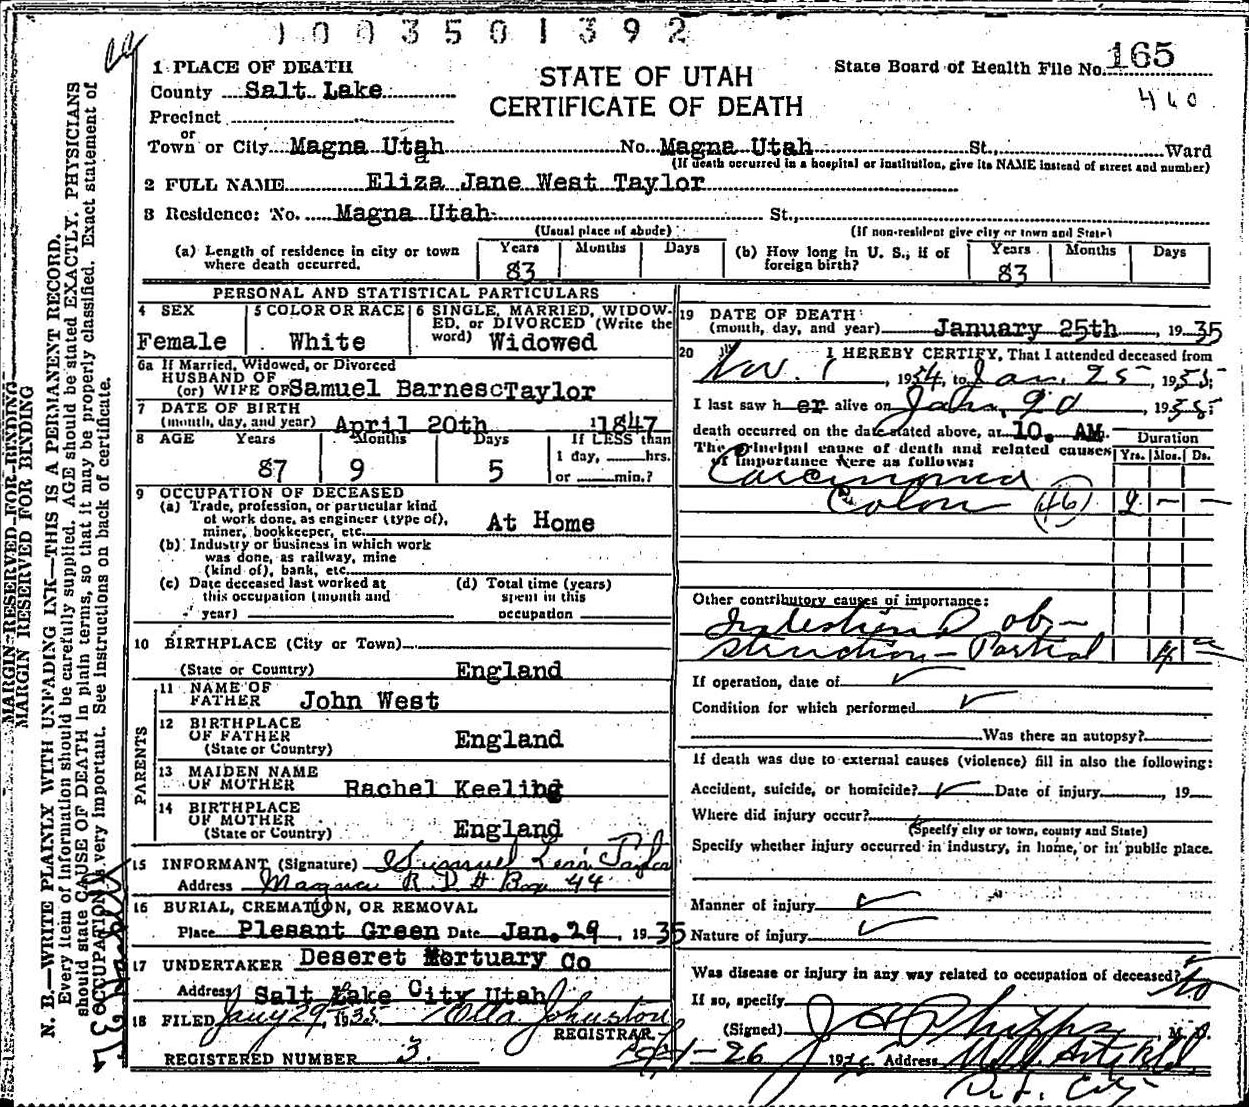 1003501392
1 PLACE OF DEATH
County Salt Lake
Precinct
or
Town or City Magna Utah No. Magna Utah St., Ward
(If death occurred in a hospital or institution, give its NAME instead of street and number)
STATE OF UTAH
CERTIFICATE OF DEATH
State Board of Health File No. 165
460
2 FULL NAME Eliza Jane West Taylor
3 Residence: No. Magna Utah St.,
(Usual place of abode) (If non-resident give city or town and State)
(a) Length of residence in city or town where death occurred. Years 83 Months Days
(b) How long in U. S., if of foreign birth? Years 83 Months Days
PERSONAL AND STATISTICAL PARTICULARS
4 SEX Female
5 COLOR OR RACE White
6 SINGLE, MARRIED, WIDOWED, or DIVORCED (Write the word) Widowed
6a If Married, Widowed, or Divorced
HUSBAND OF
(or) WIFE OF Samuel Barnesc Taylor
7 DATE OF BIRTH
(month, day, and year) April 20th 1847
8 AGE Years 87 Months 9 Days 5 If LESS than 1 day, hrs. or min.?
9 OCCUPATION OF DECEASED
(a) Trade, profession, or particular kind of work done, as engineer (type of), miner, bookkeeper, etc. At Home
(b) Industry or business in which work was done, as railway, mine (kind of), bank, etc.
(c) Date deceased last worked at this occupation (month and year)
(d) Total time (years) spent in this occupation
10 BIRTHPLACE (City or Town)
(State or Country) England
PARENTS
11 NAME OF FATHER John West
12 BIRTHPLACE OF FATHER
(State or Country) England
13 MAIDEN NAME OF MOTHER Rachel Keeling
14 BIRTHPLACE OF MOTHER
(State or Country) England
15 INFORMANT (Signature) Samuel Levi Taylor
Address Magna R. D # Box 44
16 BURIAL, CREMATION, OR REMOVAL
Place Plesant Green Date Jan. 29, 1935
17 UNDERTAKER Deseret Mortuary Co
Address Salt Lake City Utah
18 FILED Jany 29, 1935 Etta Johnston
REGISTRAR.
REGISTERED NUMBER 3.
19 DATE OF DEATH
(month, day, and year) January 25th, 1935
20 I HEREBY CERTIFY, That I attended deceased from
Nov. 1, 1934, to Jan. 25, 1935;
I last saw her alive on Jan., 1935;
death occurred on the date stated above, at 10. AM.
The principal cause of death and related causes of importance were as follows:
Duration
Yrs. Mos. Ds.
Carcinoma
Colon (46) 2 – –
Other contributory causes of importance:
Intestinal ob-
struction - Partial 4
If operation, date of
Condition for which performed
Was there an autopsy?
If death was due to external causes (violence) fill in also the following:
Accident, suicide, or homicide? Date of injury, 19
Where did injury occur?
(Specify city or town, county and State)
Specify whether injury occurred in industry, in home, or in public place.
Manner of injury
Nature of injury
Was disease or injury in any way related to occupation of deceased? No
If so, specify
(Signed) J A Phipps M. D.
1-26 1935 Address
S. L. City
MARGIN RESERVED FOR BINDING
MARGIN RESERVED FOR BINDING
N. B.—WRITE PLAINLY WITH UNFADING INK—THIS IS A PERMANENT RECORD.
Every item of information should be carefully supplied. AGE should be stated EXACTLY. PHYSICIANS
should state CAUSE OF DEATH in plain terms, so that it may be properly classified. Exact statement of
OCCUPATION is very important. See instructions on back of certificate.